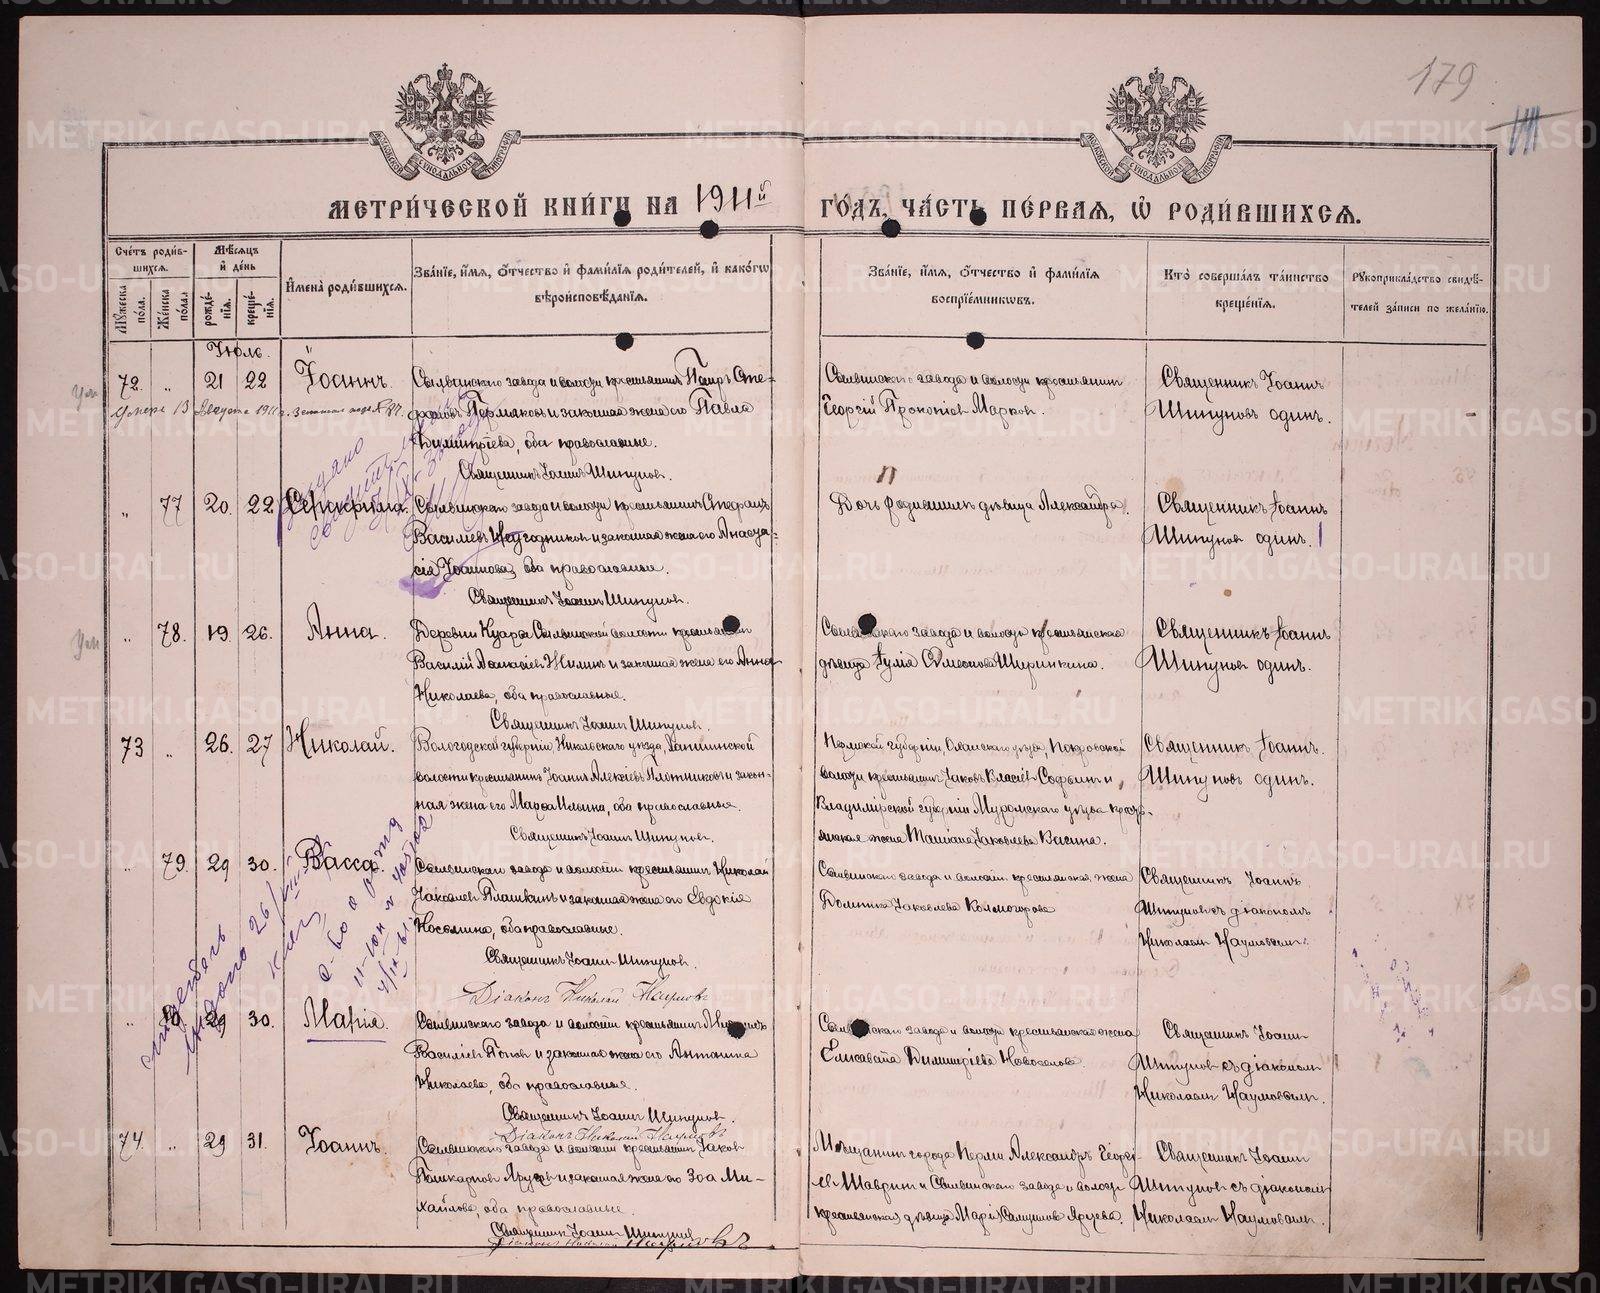 179
МЕТРИ́ЧЕСКОЙ КНИ́ГИ НА 1911й ГО́ДЪ, ЧА́СТЬ ПЕ́РВАЯ, Ѡ҆ РОДИ́ВШИХСЯ.
Сче́тъ роди́в-
шихся.
Мѣ́сяцъ
и҆ де́нь
И҆мена̀ роди́вшихся.
Зва́нїе, и҆́мя, ѻ҆́тчество и҆ фами́лїя роди́телей, и҆ како́гѡ
вѣроисповѣ́данїя.
Зва́нїе, и҆́мя, ѻ҆́тчество и҆ фами́лїя
воспрїе́мникѡвъ.
Кто̀ соверша́лъ та́инство
креще́нїя.
Рꙋкоприкла́дство свидѣ́-
телей за́писи по жела́нїю.
Мꙋ́жеска
по́ла.
Же́нска
по́ла.
рожде́-
нїя.
креще́-
нїя.
Іюль.
72. „ 21 22 Іоаннъ.
Сылвинскаго завода и волости крестьянинъ Петръ Сте-
фановъ Пермяковъ и законная жена его Павла
Димитріева, оба православные.
Священникъ Іоаннъ Шипуновъ.
Сылвинскаго завода и волости крестьянинъ
Георгій Прокопіевъ Марковъ.
Священникъ Іоаннъ
Шипуновъ один.
Умеръ 13 Августа 1911 г.
„ 77 20. 22
Сылвинскаго завода и волости крестьянинъ Стефанъ
Васильевъ и законная жена его Анаста-
сія Іоаннова, оба православные.
Священникъ Іоаннъ Шипуновъ.
Дочь родившихъ дѣвица Александра.
Священникъ Іоаннъ
Шипуновъ один.
„ 78. 19. 26. Анна.
Деревни Сылвинской волости крестьянинъ
Василій Аѳанасіевъ Жилинъ и законная жена его Анна
Николаева, оба православные.
Священникъ Іоаннъ Шипуновъ.
Сылвинскаго завода и волости крестьянская
дѣвица Іулія Симеонова Ширинкина.
Священникъ Іоаннъ
Шипуновъ один.
73 „ 26. 27 Николай.
Вологодской губерніи Никольскаго уѣзда,
волости крестьянинъ Іоаннъ Алексіевъ Плотниковъ и закон-
ная жена его Марѳа Ильина, оба православные.
Священникъ Іоаннъ Шипуновъ.
Пермской губерніи, Оханскаго уѣзда, Покровской
волости крестьянинъ Іаковъ Власіевъ и
Владимірской губерніи Муромскаго уѣзда крестъ-
янская жена Татіана Іаковлева
Священникъ Іоаннъ.
Шипуновъ один.
„ 79. 29 30. Васса.
Сылвинскаго завода и волости крестьянинъ Николай
Іаковлевъ Плашкинъ и законная жена его Евдокія
оба православные.
Священникъ Іоаннъ Шипуновъ.
Діаконъ Николай Наумовъ
Сылвинскаго завода и волости крестьянская жена
Домника Іаковлева Колмогорова
Священникъ Іоаннъ
Шипуновъ съ діакономъ
Николаемъ Наумовымъ.
„ 29 30. Марія.
Сылвинскаго завода и волости крестьянинъ
Василіевъ Поповъ и законная жена его Антонина
Николаева, оба православные.
Священникъ Іоаннъ Шипуновъ.
Діаконъ Николай Наумовъ
Сылвинскаго завода и волости крестьянская жена
Елисавета Димитріева Новоселова.
Священникъ Іоаннъ
Шипуновъ съ діакономъ
Николаемъ Наумовымъ.
74. „ 29 31. Іоаннъ.
Сылвинскаго завода и волости крестьянинъ Іаковъ
Поликарповъ и законная жена его Зоа Ми-
хайлова, оба православные.
Священникъ Іоаннъ Шипуновъ
Діаконъ Николай Наумовъ
Мѣщанинъ города Перми Александръ Георгі-
евъ Шавринъ и Сылвинскаго завода и волости
крестьянская дѣвица Марія Ярусова.
Священникъ Іоаннъ
Шипуновъ съ діакономъ
Николаемъ Наумовымъ.
METRIKI.GASO-URAL.RU